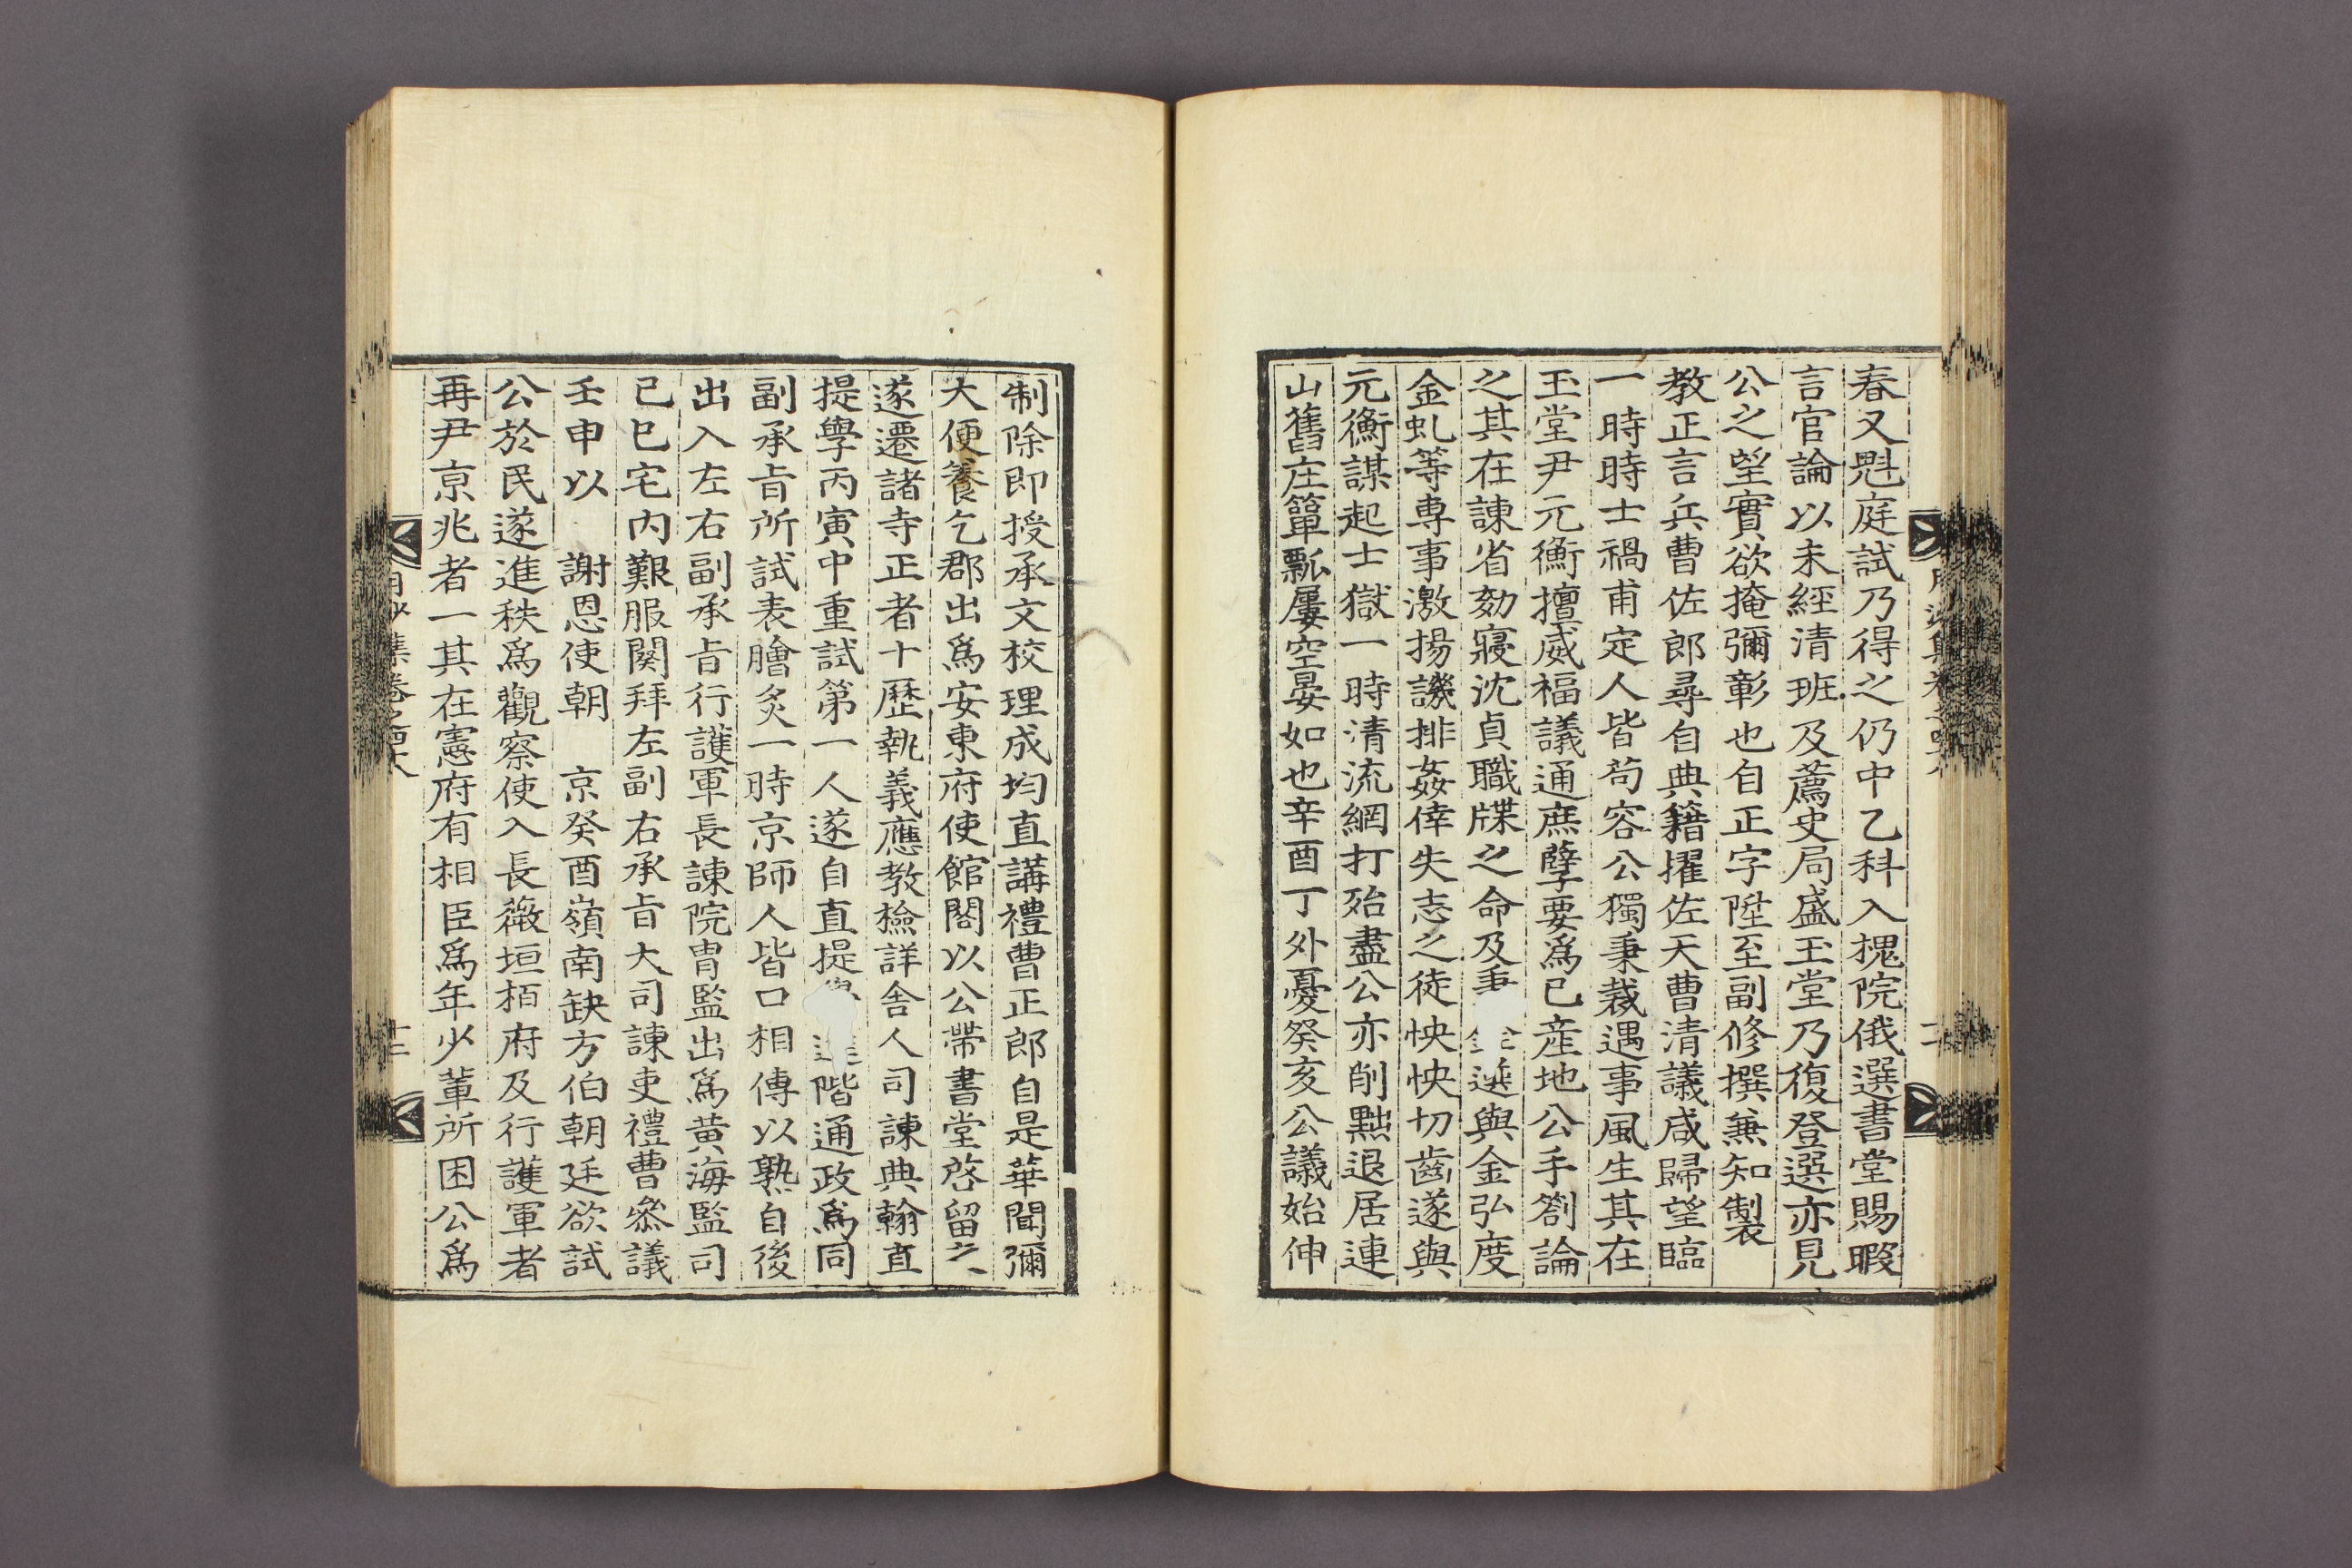 春又魁庭試乃得之仍中乙科入槐院俄選書堂賜暇
言官論以未經清班及薦史局盛玉堂乃復登選亦見
公之望實欲掩彌彰也自正字陞至副修撰兼知製
教正言兵曹佐郎尋自典籍擢佐天曹清議咸歸望臨
一時時士禍甫定人皆苟容公獨秉裁遇事風生其在
玉堂尹元衡擅威福議通庶孽要爲己產地公手劄論
之其在諫省劾寢沈貞職牒之命及 與金弘度
金虬等專事激揚譏排姦倖失志之徒怏怏切齒遂與
元衡謀起士獄一時清流網打殆盡公亦削黜退居連
山舊庄簞瓢屢空晏如也辛酉丁外憂癸亥公議始伸
制除即授承文校理成均直講禮曹正郎自是華聞彌
大便養乞郡出爲安東府使館閣以公帶書堂啓留之
遂遷諸寺正者十歷執義應教檢詳舍人司諫典翰直
提學丙寅中重試第一人遂自直提 進階通政爲同
副承旨所試表膾炙一時京師人皆口相傳以熟自後
出入左右副承旨行護軍長諫院胄監出爲黃海監司
己巳宅內艱服闋拜左副右承旨大司諫吏禮曹叅議
壬申以 謝恩使朝 京癸酉嶺南缺方伯朝廷欲試
公於民遂進秩爲觀察使入長薇垣栢府及行護軍者
再尹京兆者一其在憲府有相臣爲年少軰所困公爲
月沙集卷之四十八
十二